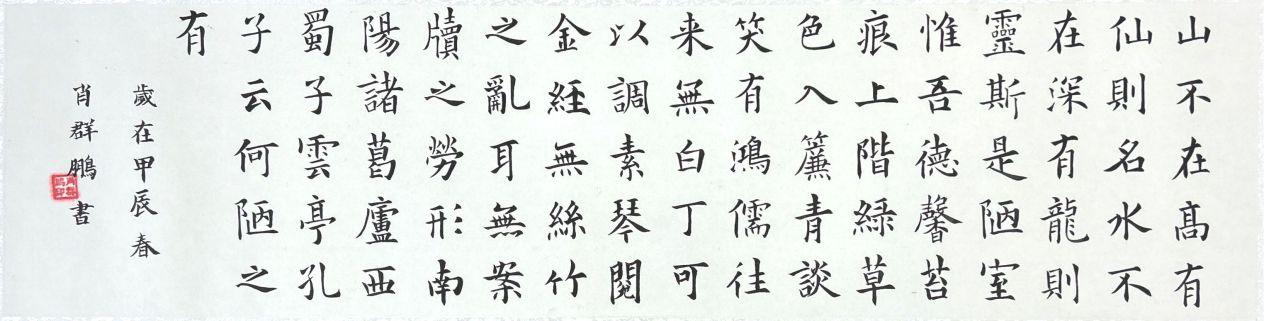 山不在髙有
仙則名水不
在深有龍則
靈斯是陋室
惟吾德馨苔
痕上階緑草
色入簾青談
笑有鴻儒往
来無白丁可
以調素琴閱
金經無絲竹
之亂耳無案
牘之勞形南
陽諸葛廬西
蜀子雲亭孔
子云何陋之
有
歲在甲辰春
肖群鵬書